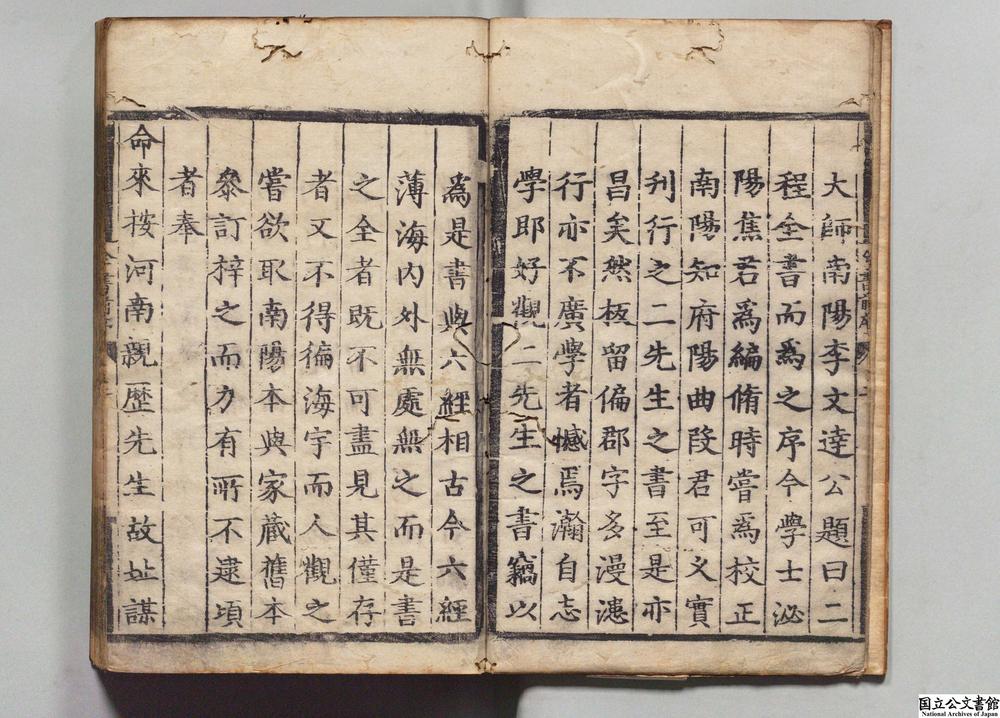 大師南陽李文達公題曰二
程全書而為之序今學士泌
陽焦君為編脩時嘗為校正
南陽知府陽曲段君可久實
刋行之二先生之書至是亦
昌矣然板留偏郡字多漫漶
行亦不廣學者憾焉瀚自志
學即好觀二先生之書竊以
為是書與六經相古今六經
薄海內外無處無之而是書
之全者既不可盡見其僅存
者又不得徧海宇而人觀之
嘗欲取南陽本與家藏舊本
叅訂梓之而力有所不逮頃
者奉
命來按河南親歷先生故址謀
国立公文書館
National Archives of Japan